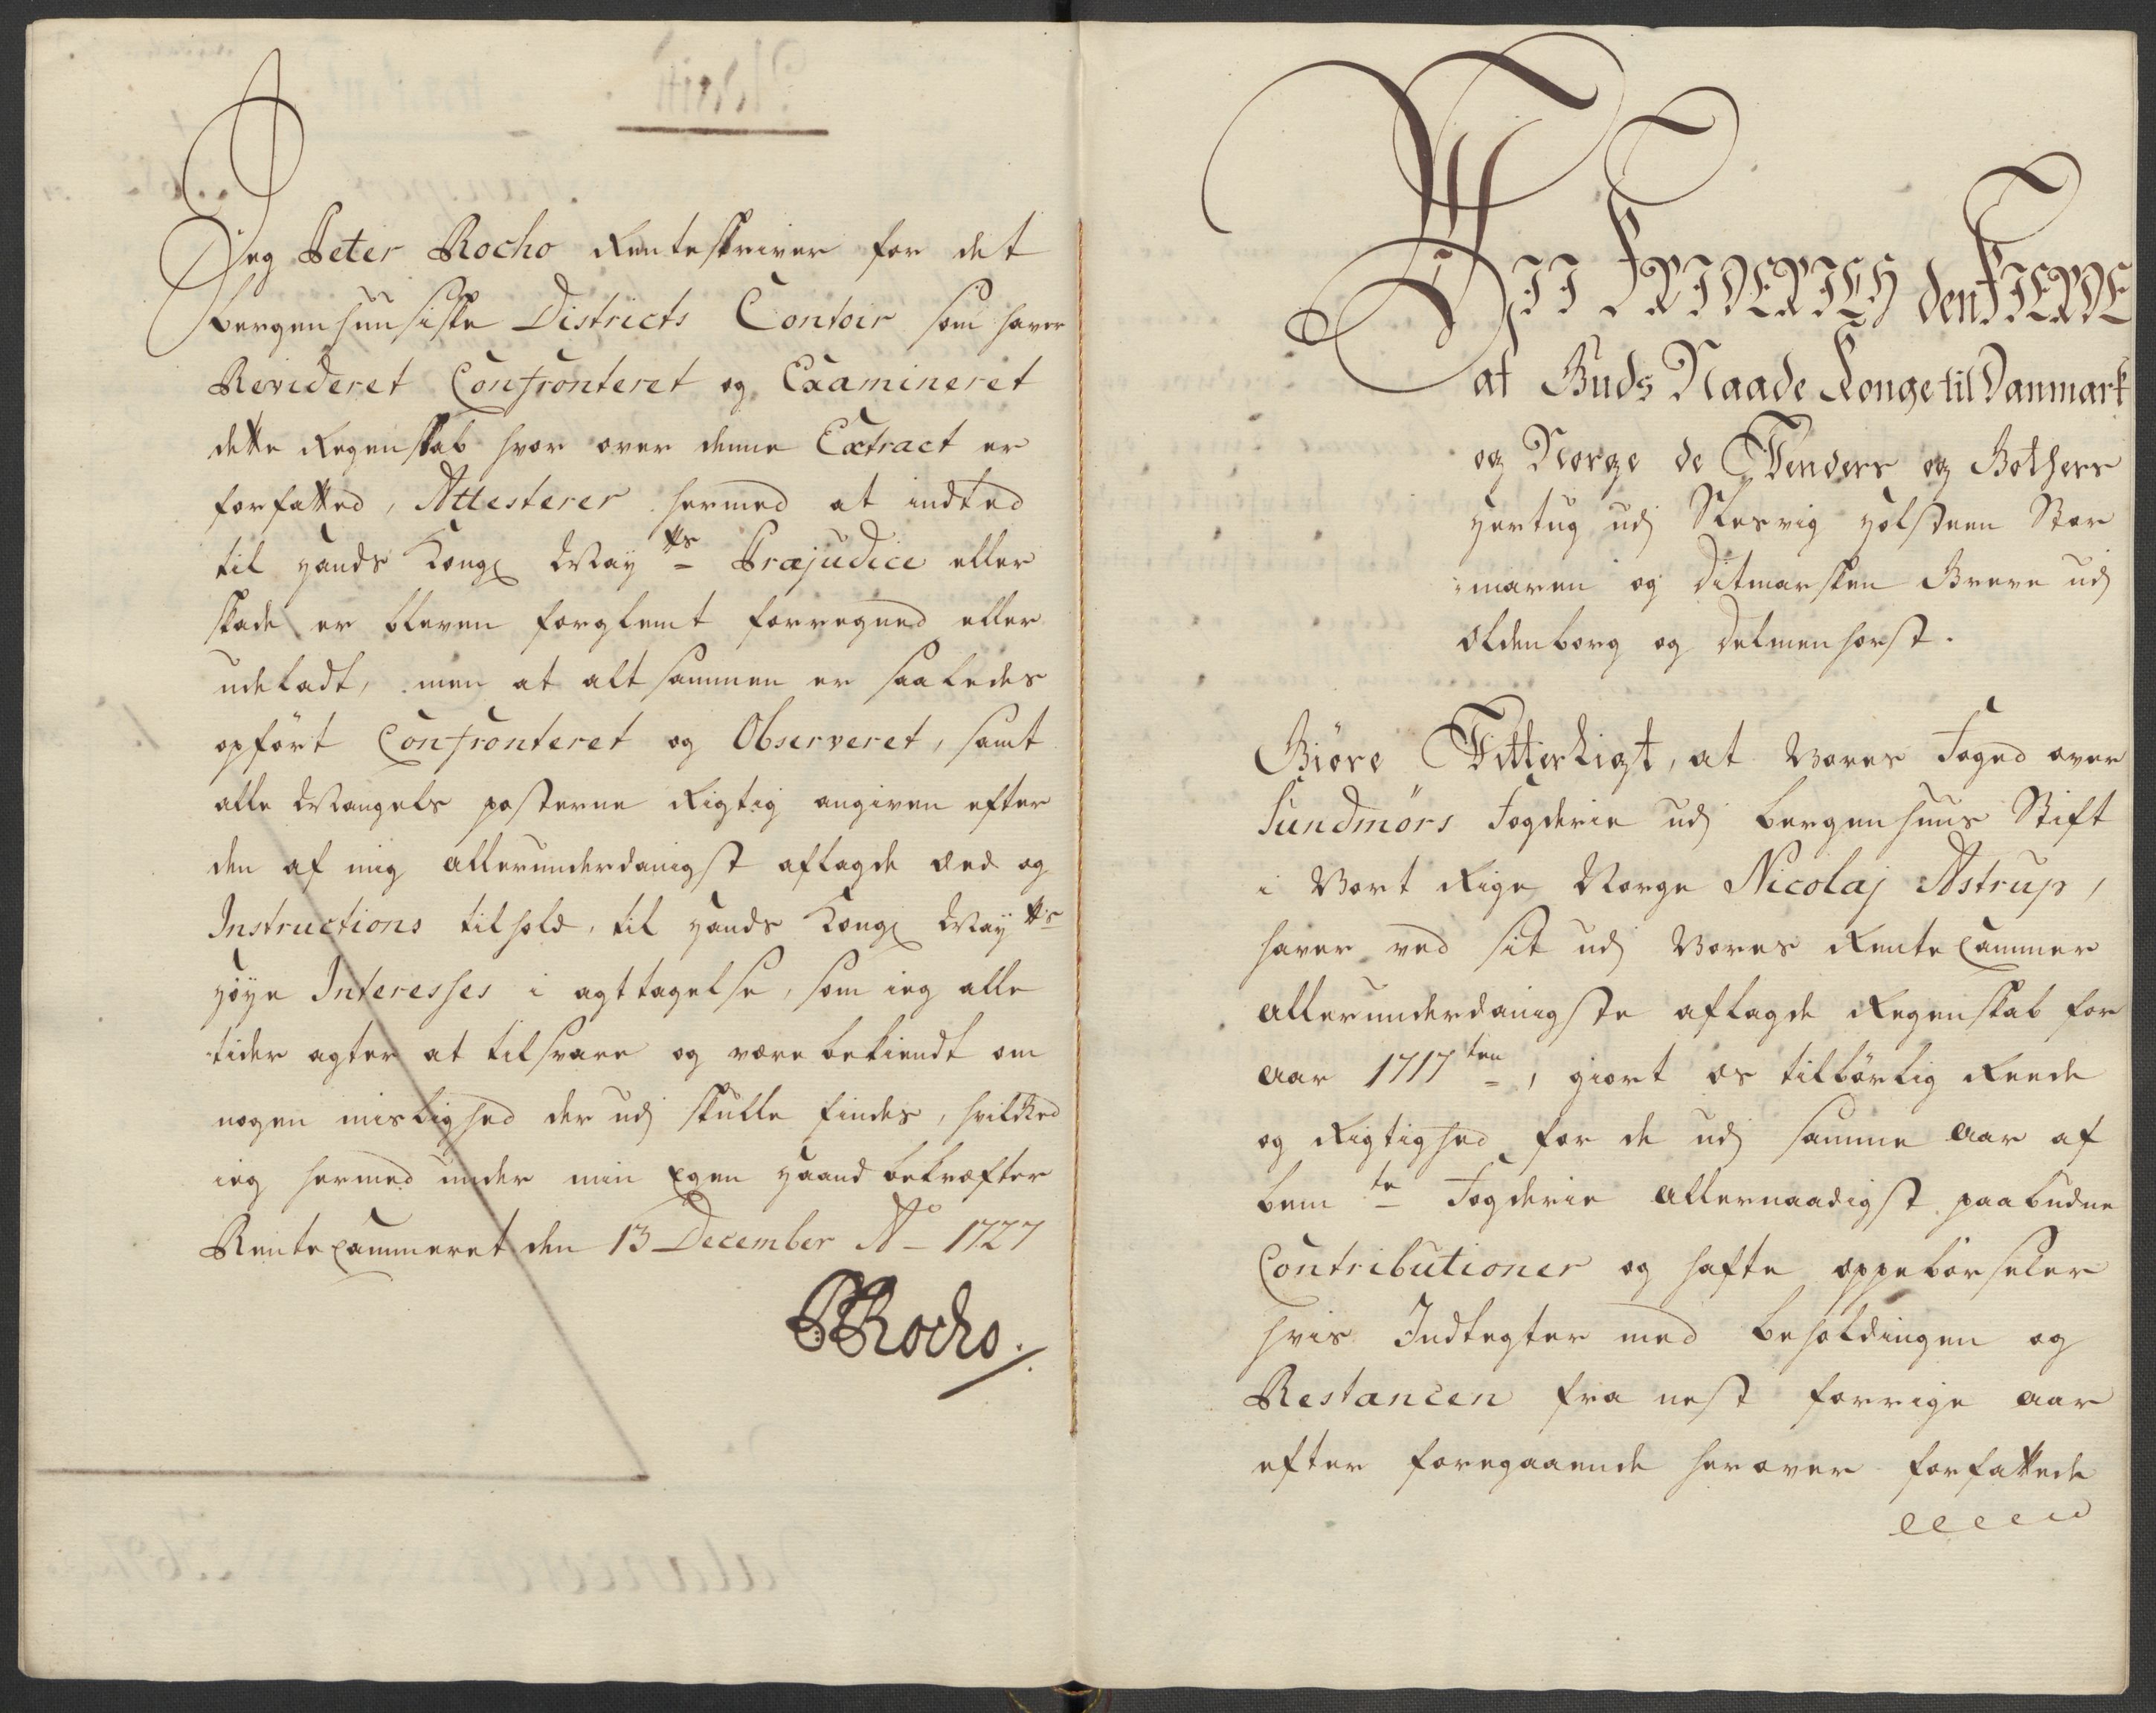 Jeg Peter Rocho Renteskriver for det
bergenhuusiske Districts Contoir som haver
Revideret Confronteret og Examineret
dette Regenskab hvor over denne Extract er
forfatted, Attesterer hermed at indted
til hands Kongl May tts Præjudice eller
skade er bleven forglemt forregned eller
udeladt, men at alt sammen er saaledes
opført Confronteret og Observeret, samt
alle Mangels posterne Rigtig angiven efter
den af mig allerunderdanigst aflagde Eed og
Instructions tilhold, til hands Kongl May tts
høye Interesses i agttagelse, som ieg alle
tider agter at tilsvare og være bekiendt om
nogen mislighed der udj skulle findes, hvilked
ieg hermed under min Egen haand bekræfter
Rentecammeret den 13 December Ao 1727
PRocho.
WII FRIDERICH den FIERDE
af Guds Naade Konge til Danmark
og Norge de Wenders og Gothers
hertug udj Slesvig holsteen Stor
maren og Ditmarsken Greve udj
Oldenborg og Delmenhorst.
Giøre Witterligt, at Vores Foged over
Sundmörs Fogderie udj bergenhuus Stift
i Vort Rige Norge Nicolaj Astrup,
haver ved sit udj Vores Rente Cammer
allerunderdanigste aflagde Regenskab for
aar 1717 ten, giort os tilbørlig Reede
og Rigtighed for de udj samme aar af
bem te Fogderie allernaadigst paabudne
Contributioner og hafte oppebørseler
hvis Indtegter med beholdingen og
Restancen fra nest forrige aar
efter foregaaende herover forfattede